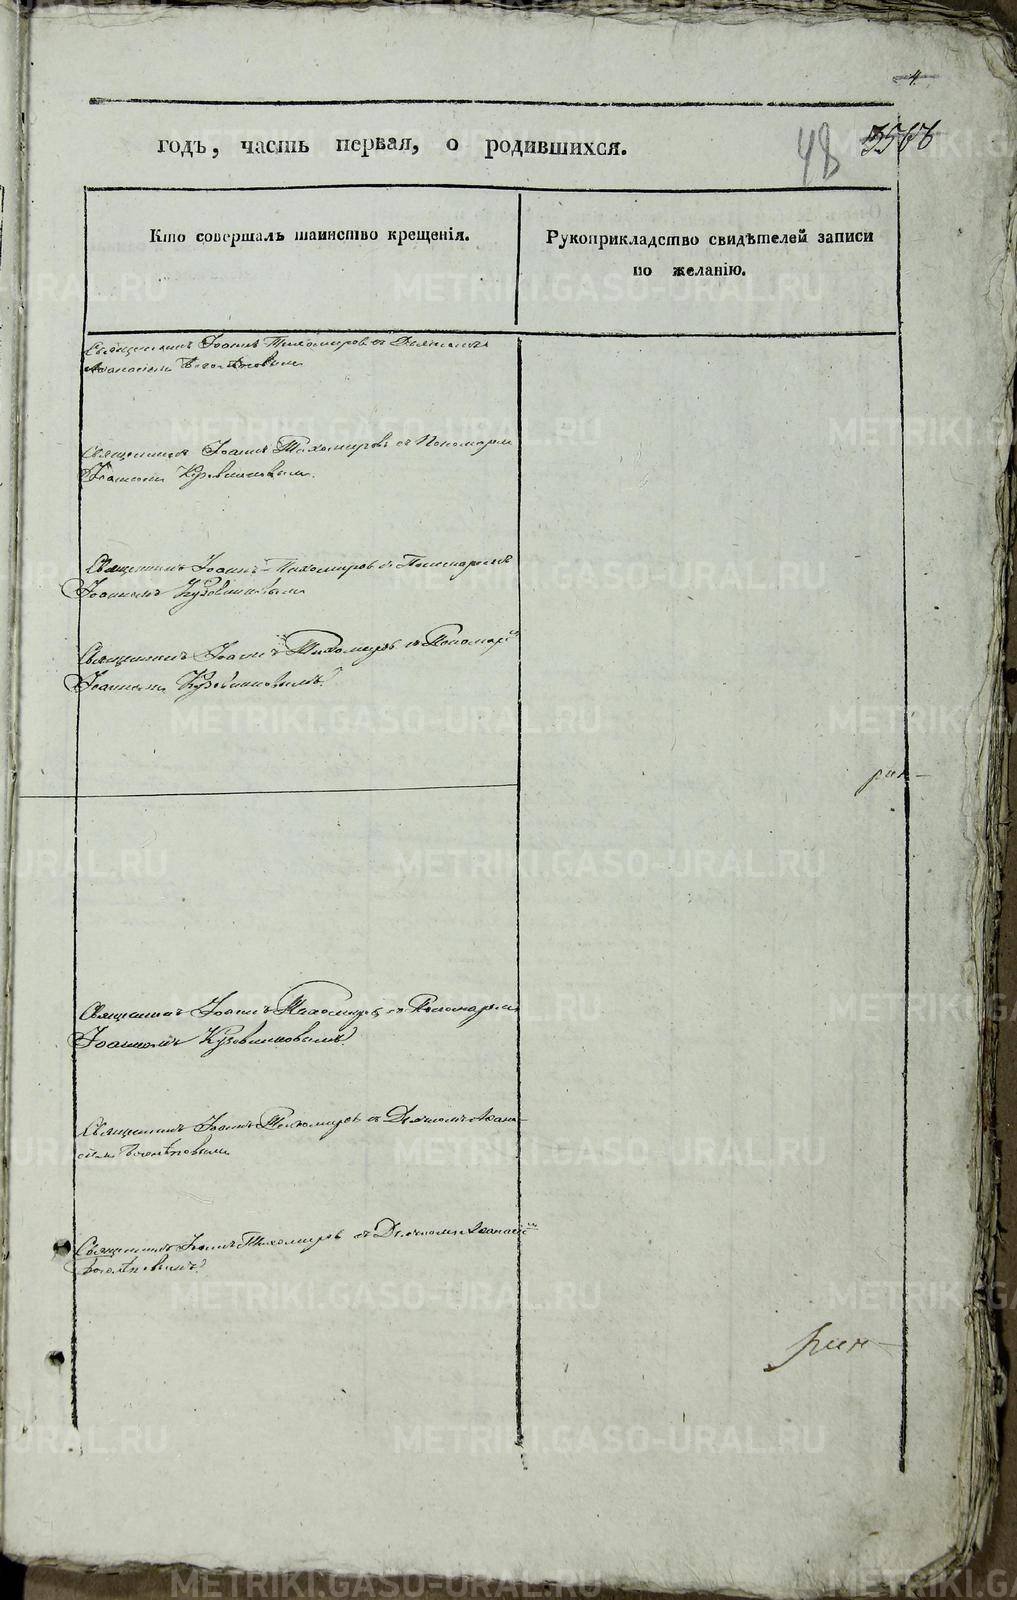 4.
годъ, часть первая, о родившихся.
48
Кто совершалъ таинство крещенія.
Рукоприкладство свидѣтелей записи
по желанію.
Священникъ Іоаннъ Тихомировъ съ Дьячкомъ
Аѳанасіемъ Боголѣповым
Священникъ Іоаннъ Тихомировъ съ Пономарем
Іоанном Кузовниковым.
Священникъ Іоаннъ Тихомиров съ Пономаремъ
Іоанномъ Кузовниковым
Священникъ Іоаннъ Тихомировъ съ Пономаремъ
Іоанномъ Кузовниковымъ
Священникъ Іоаннъ Тихомировъ съ Пономаремъ
Іоанномъ Кузовниковымъ
Священникъ Іоаннъ Тихомировъ съ Дьячкомъ Аѳана-
сіем Боголѣповым
Священникъ Іоаннъ Тихомировъ съ Дьячкомъ Аѳанасіем
Боголѣповымъ
METRIKI.GASO-URAL.RU